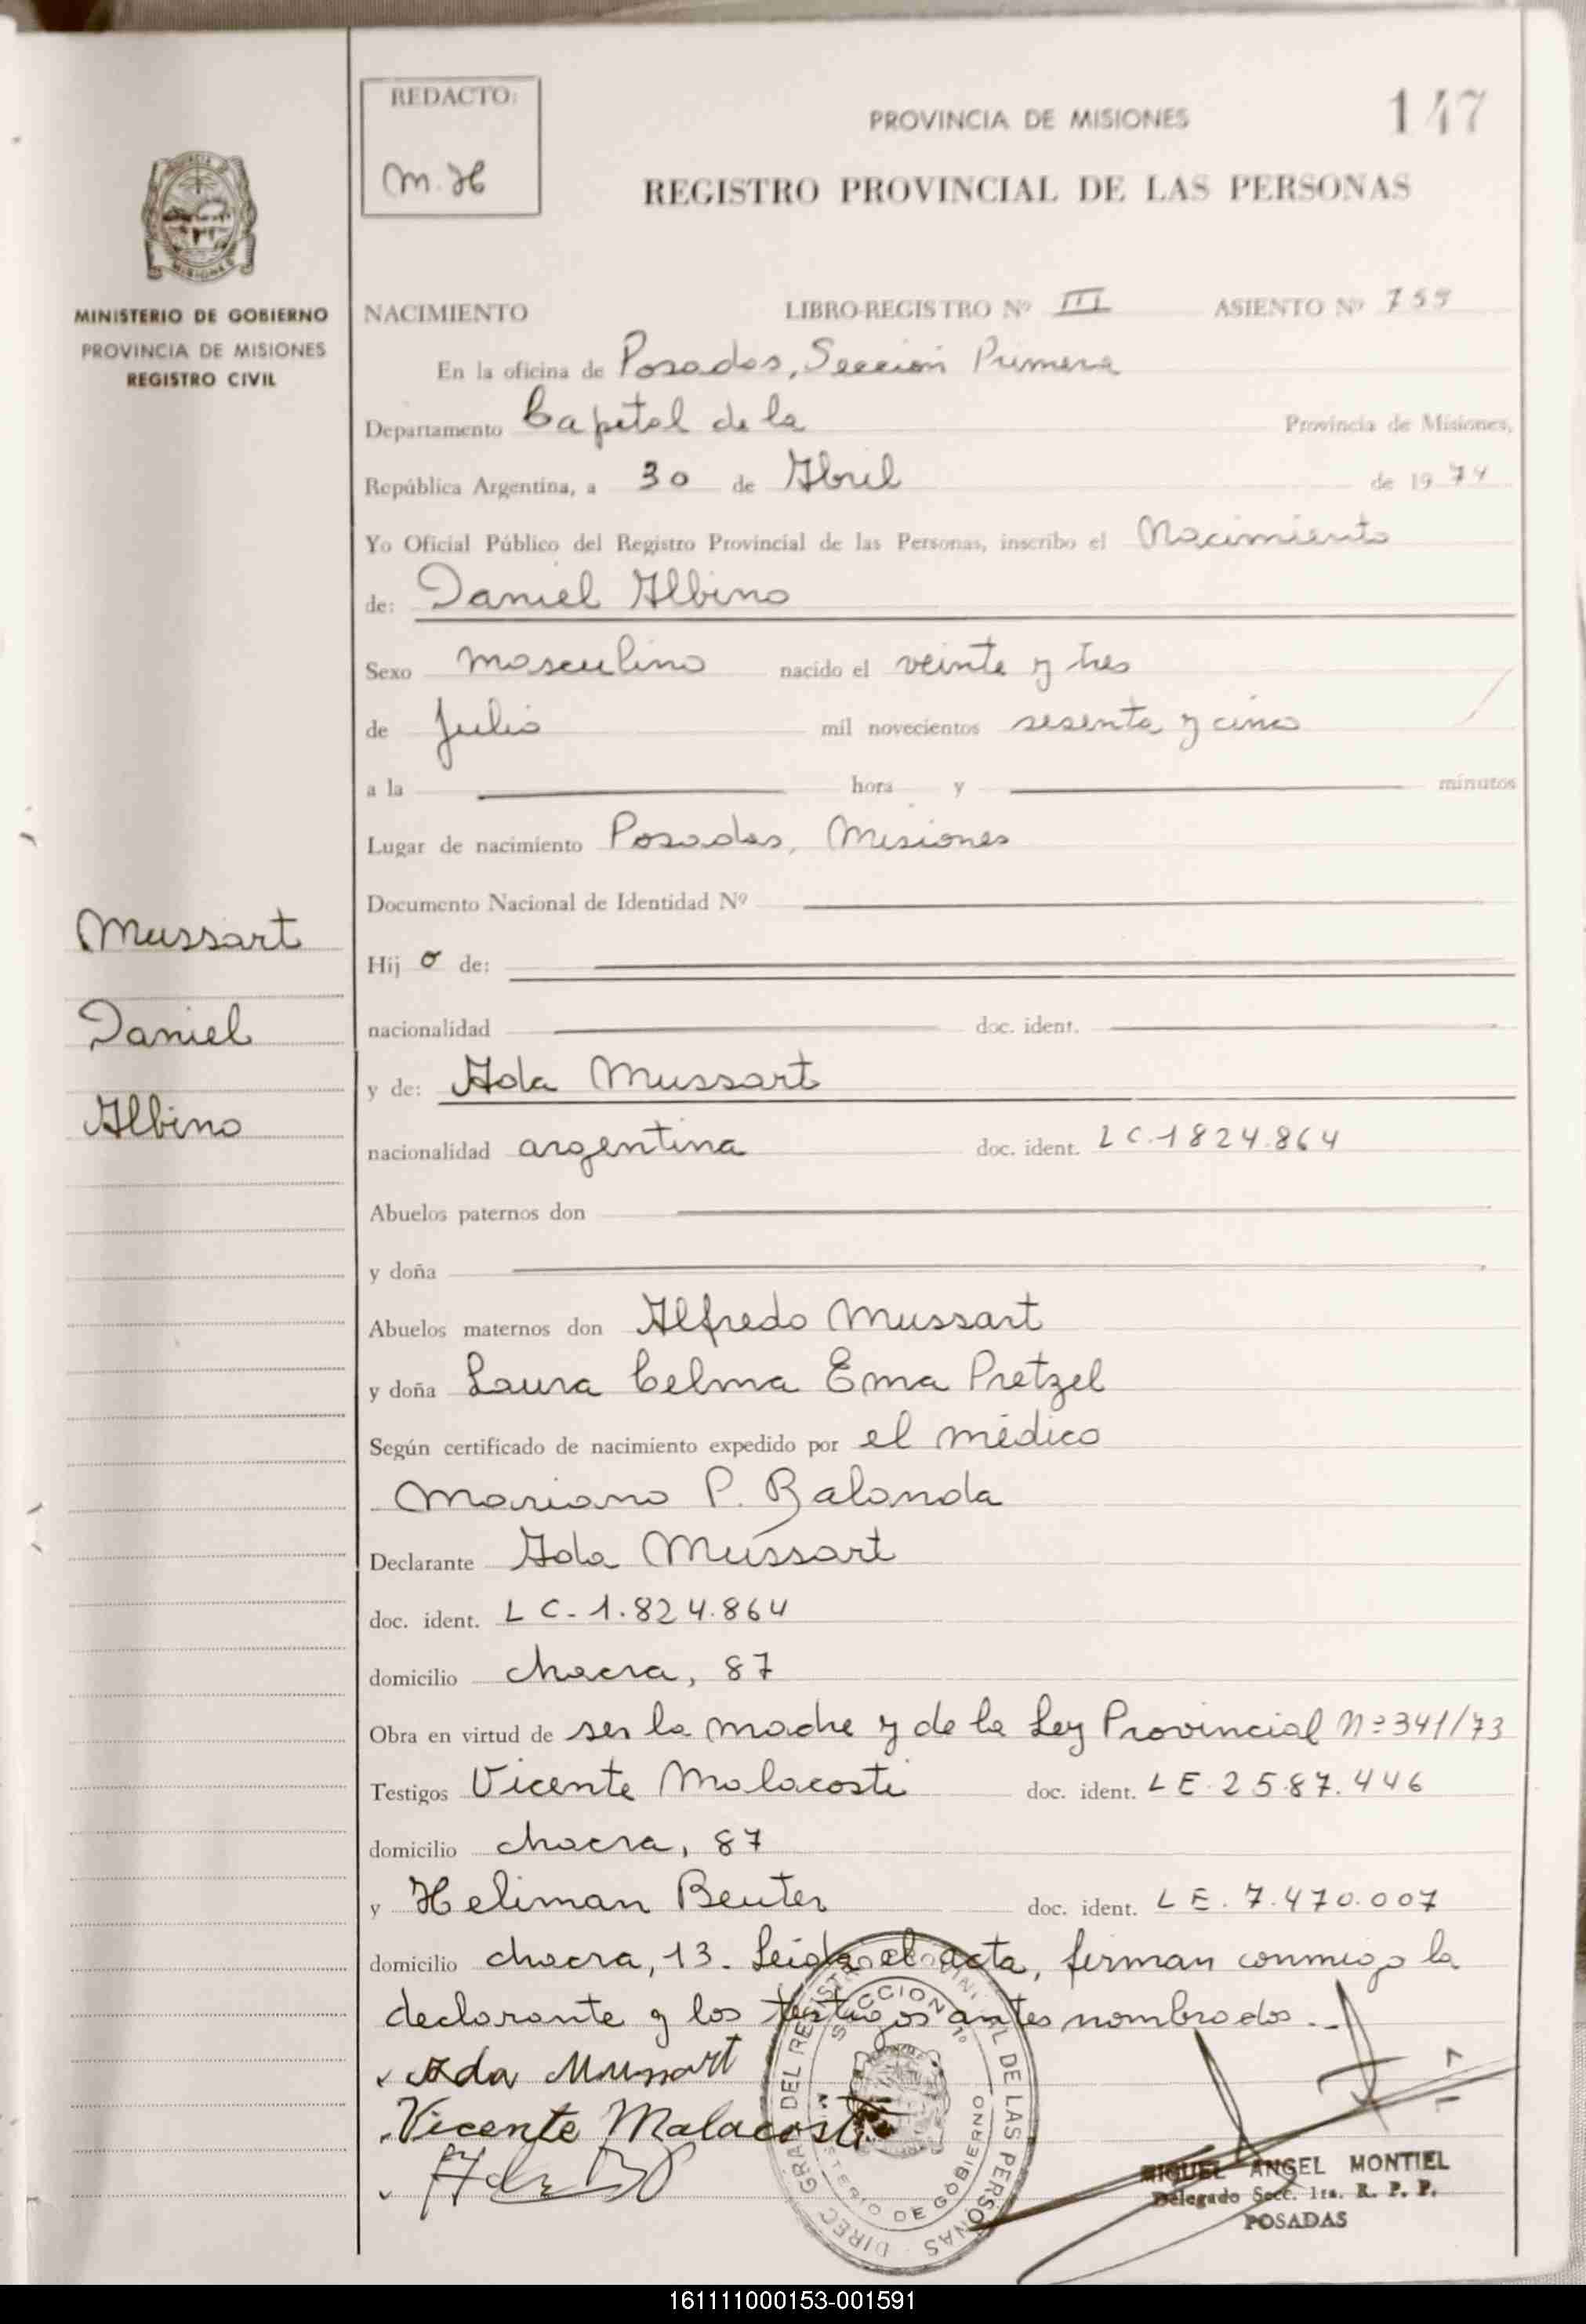 REDACTO:
M. H
PROVINCIA DE MISIONES
147
REGISTRO PROVINCIAL DE LAS PERSONAS
MISIONES
MINISTERIO DE GOBIERNO
PROVINCIA DE MISIONES
REGISTRO CIVIL
NACIMIENTO LIBRO-REGISTRO Nº III ASIENTO Nº 755
En la oficina de Posadas, Sección Primera
Departamento Capital de la Provincia de Misiones,
República Argentina, a 30 de Abril de 1974
Yo Oficial Público del Registro Provincial de las Personas, inscribo el Nacimiento
de: Daniel Albino
Sexo masculino nacido el veinte y tres
de Julio mil novecientos sesenta y cinco
a la hora y minutos
Lugar de nacimiento Posadas, Misiones
Documento Nacional de Identidad Nº
Mussart
Daniel
Albino
Hij o de:
nacionalidad doc. ident.
y de: Ada Mussart
nacionalidad argentina doc. ident. LC.1824.864
Abuelos paternos don
y doña
Abuelos maternos don Alfredo Mussart
y doña Laura Celma Ema Pretzel
Según certificado de nacimiento expedido por el médico
Mariano P. Balanda
Declarante Ada Mussart
doc. ident. LC-1.824.864
domicilio chacra, 87
Obra en virtud de ser la madre y de la Ley Provincial Nº 341/73
Testigos Vicente Malacosti doc. ident. LE.2587.446
domicilio chacra, 87
y Heliman Beuter doc. ident. LE.7.470.007
domicilio chacra, 13. Leida el acta, firman conmigo la
declarante y los testigos antes nombrados.-
Ada Mussart
Vicente Malacosti
DIREC GRAL DEL REGISTRO PROVINCIAL DE LAS PERSONAS
SECCION 1º
MINISTERIO DE GOBIERNO
MIGUEL ANGEL MONTIEL
Delegado Secc. 1ra. R. P. P.
POSADAS
161111000153-001591